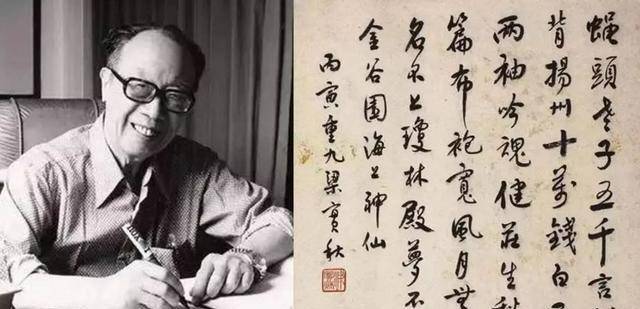 蠅頭老子五千言
背揚州十萬錢白
兩袖吟魂健莊生秋
篇布袍寬風月無
名不上瓊林殿夢不
金谷園海上神仙
丙寅重九梁實秋